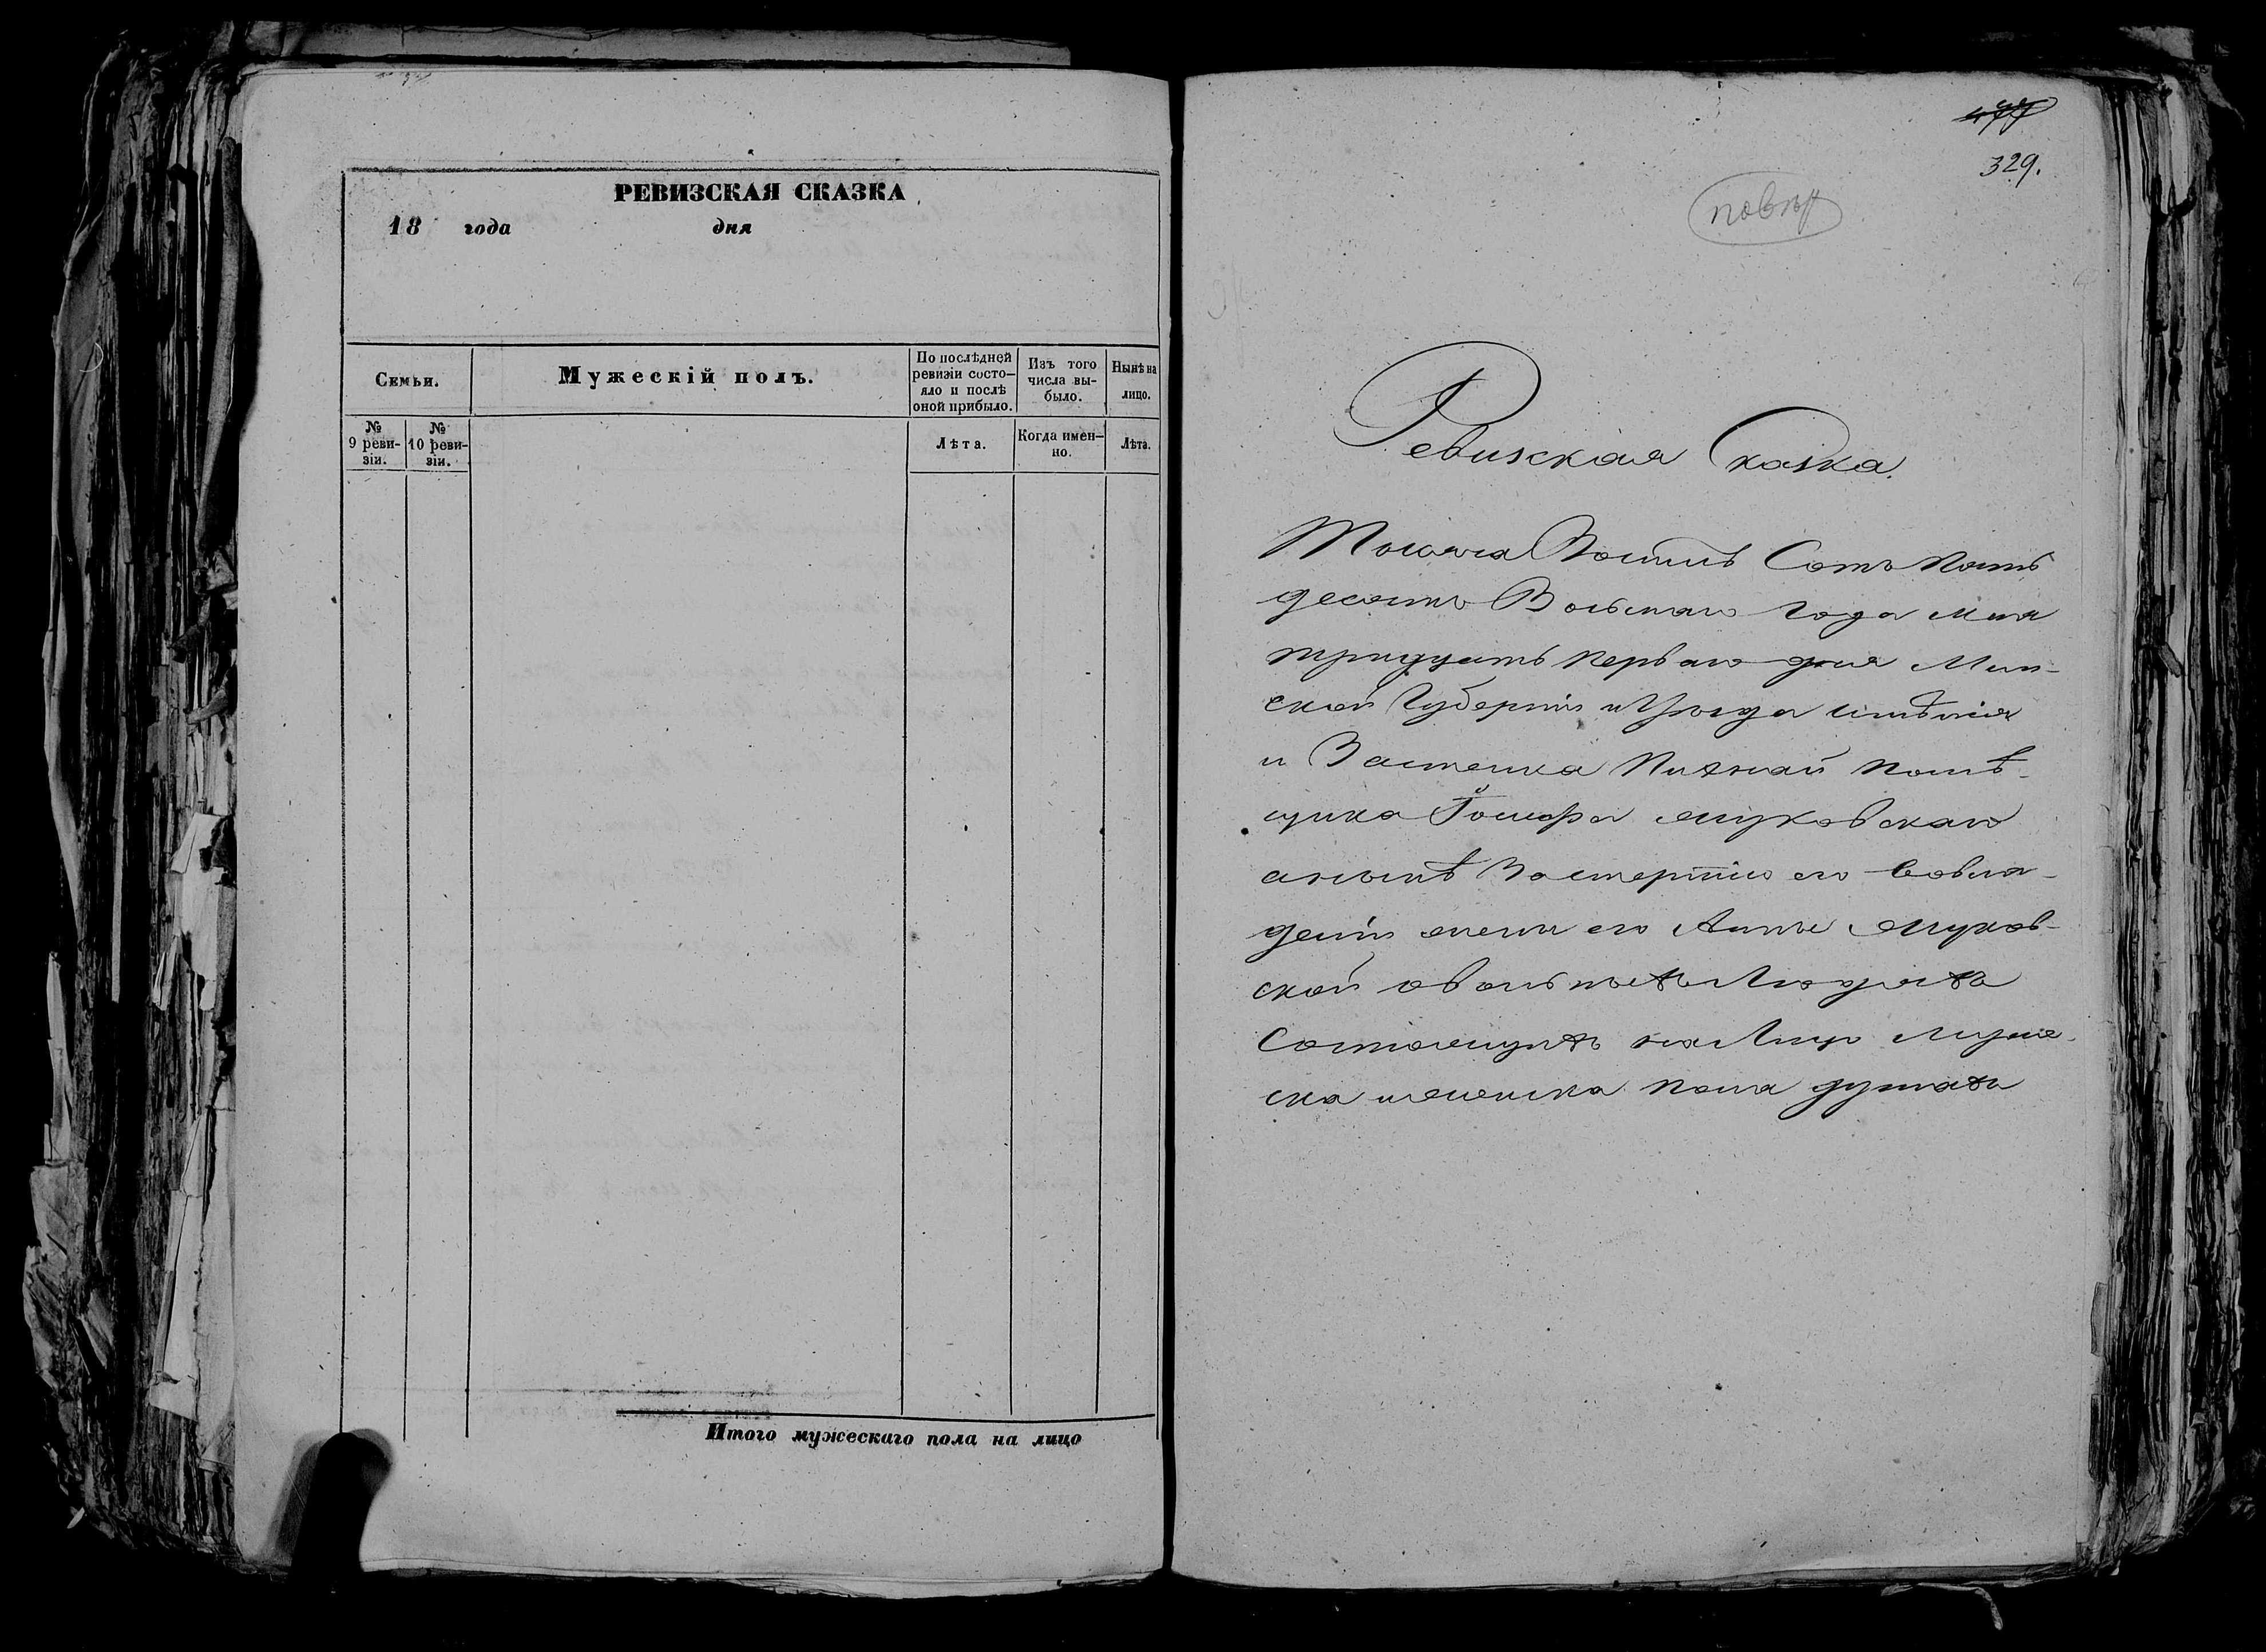 РЕВИЗСКАЯ СКАЗКА
18 года дня
Семьи.
Мужескій полъ.
По послѣдней ревизіи состо-
яло и послѣ
оной прибыло.
Изъ того
числа вы-
было.
Нынѣ на
лицо.
№
9 реви-
зіи.
№
10 реви-
зіи.
Лѣта.
Когда имен-
но.
Лѣта.
Итого мужескаго пола на лицо
329.
повтр
Ревизская Сказка.
Тысяча Восемь Сотъ Пять
десятъ Восьмаго года Мая
тридцать Перваго дня Мин-
ской Губерніи и Уѣзда имѣнія
и Застенка Помѣ-
щика
анынѣ За смертію его Во вла-
деніи жены его Анны
ской о вольныхъ Людяхъ
Состоящихъ на Лицо Муже-
ска и женска Пола душахъ